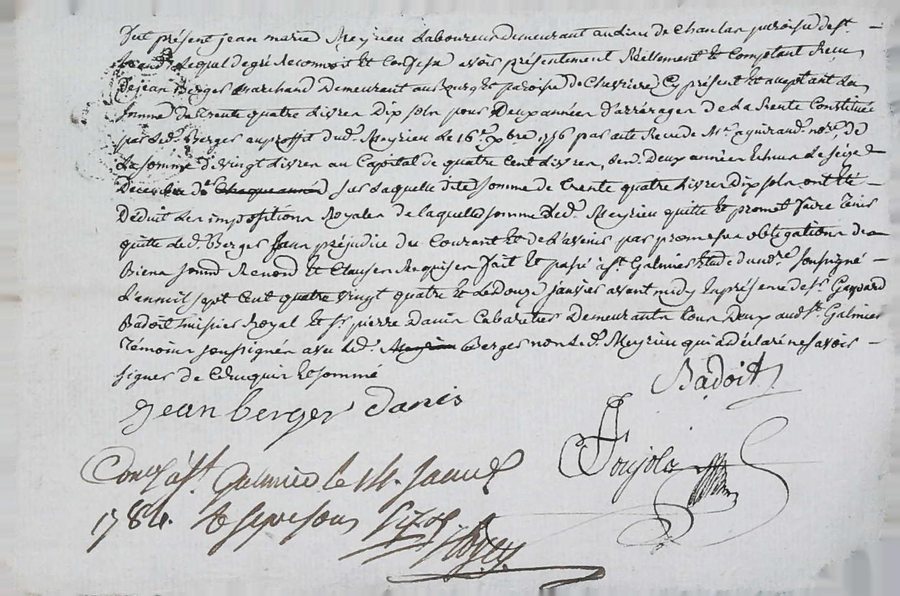 fut présent jean marie Meyrieu Laboureur demeurant au lieu de Chanlas paroisse de st.
Lequel de gré Reconnoit et Confesse avoir présentement Réellement et Comptant Recu
de jean Berger marchand Demeurant au Bourg et paroisse de Chevrieres Cy présent et aceptant La
somme de trente quatre Livres Dix sols pour Deux années d'arrérages de La Rente Constituée
par led. Berger au proffit dud. Meyrieu le 16e. xbre 1756 par acte Recu de Me. aguiraud nore. de
La somme de vingt Livres au Capital de quatre Cent Livres, Lesd. Deux années Echues Le seize
Décembre sur Laquelle dite somme de trente quatre Livres Dix sols ont été
Déduit Les impositions Royales de laquelle somme Led. Meyrieu quitte et promet faire tenir
quitte led. Berger sans préjudice du Courant et de L'avenir par promesses obligations de
Biens soumis Renon. et Clauses Requises fait et passé à st. Galmier Etude du nore. soussigné
L'an mil sept Cent quatre vingt quatre et Le Douze janvier avant midy En présence de sr. Gaspard
Badoit huissier Royal et sr. pierre Danis Cabaretier Demeurants tous Deux aud. st. Galmier
témoins soussignés avec led. Berger non led. Meyrieu qui a déclaré ne savoir
signer de Ce requis et sommé
jean berger danis
Badoit
Poujols
Con.lé à st. Galmier le 14. janvier
1784. Re sept sous